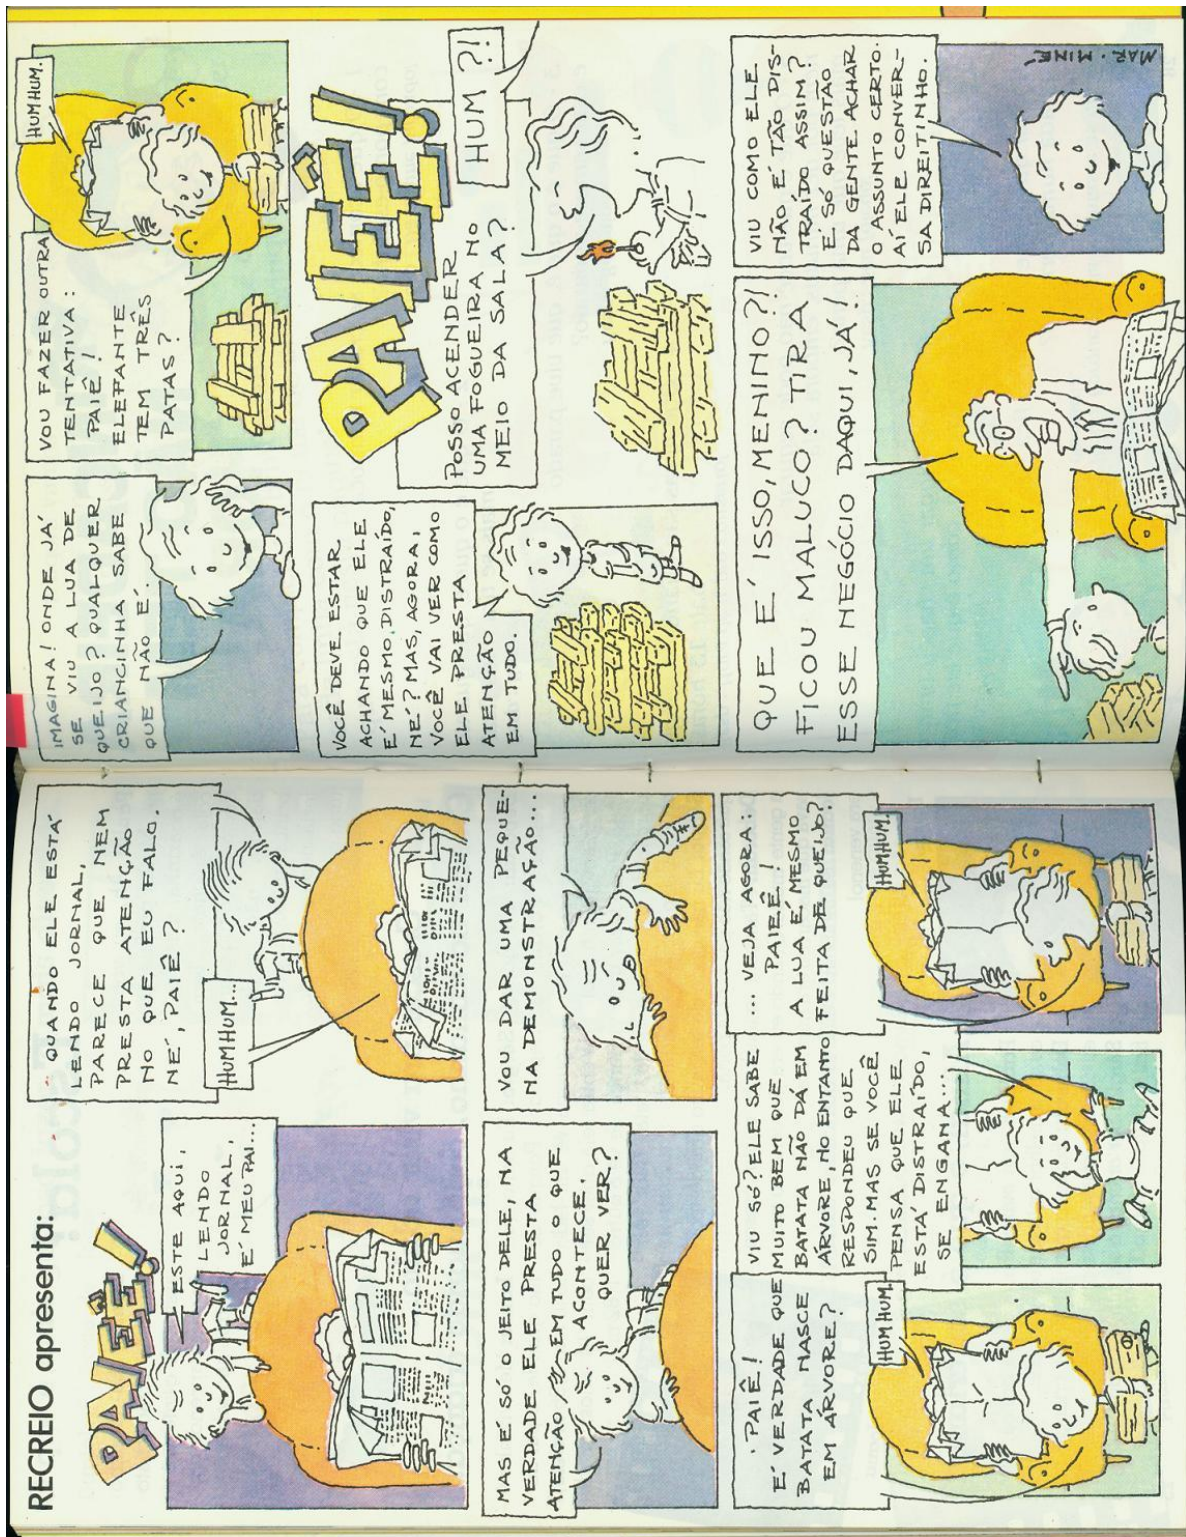 RECREIO apresenta:
PAIÊ!
ESTE AQUI,
LENDO
JORNAL,
É MEU PAI...
QUANDO ELE ESTÁ
LENDO JORNAL,
PARECE QUE NEM
PRESTA ATENÇÃO
NO QUE EU FALO.
NÉ, PAIÊ?
HUMHUM...
MAS É SÓ O JEITO DELE, NA
VERDADE ELE PRESTA
ATENÇÃO EM TUDO O QUE
ACONTECE.
QUER VER?
VOU DAR UMA PEQUE-
NA DEMONSTRAÇÃO...
PAIÊ!
É VERDADE QUE
BATATA NASCE
EM ÁRVORE?
HUMHUM.
VIU SÓ? ELE SABE
MUITO BEM QUE
BATATA NÃO DÁ EM
ÁRVORE, NO ENTANTO
RESPONDEU QUE
SIM. MAS SE VOCÊ
PENSA QUE ELE
ESTÁ DISTRAÍDO,
SE ENGANA...
... VEJA AGORA:
PAIEÊ!
A LUA É MESMO
FEITA DE QUEIJO?
HUMHUM.
IMAGINA! ONDE JÁ
SE VIU A LUA DE
QUEIJO? QUALQUER
CRIANCINHA SABE
QUE NÃO É.
VOU FAZER OUTRA
TENTATIVA:
PAIÊ!
ELEFANTE
TEM TRÊS
PATAS?
HUMHUM.
VOCÊ DEVE ESTAR
ACHANDO QUE ELE
É MESMO DISTRAÍDO,
NÉ? MAS, AGORA,
VOCÊ VAI VER COMO
ELE PRESTA
ATENÇÃO
EM TUDO.
PAIEÊ!
POSSO ACENDER
UMA FOGUEIRA NO
MEIO DA SALA?
HUM?!
QUE É ISSO, MENINO?!
FICOU MALUCO? TIRA
ESSE NEGÓCIO DAQUI, JÁ!
VIU COMO ELE
NÃO É TÃO DIS-
TRAÍDO ASSIM?
É SÓ QUESTÃO
DA GENTE ACHAR
O ASSUNTO CERTO.
AÍ ELE CONVER-
SA DIREITINHO.
MAR. MINE.